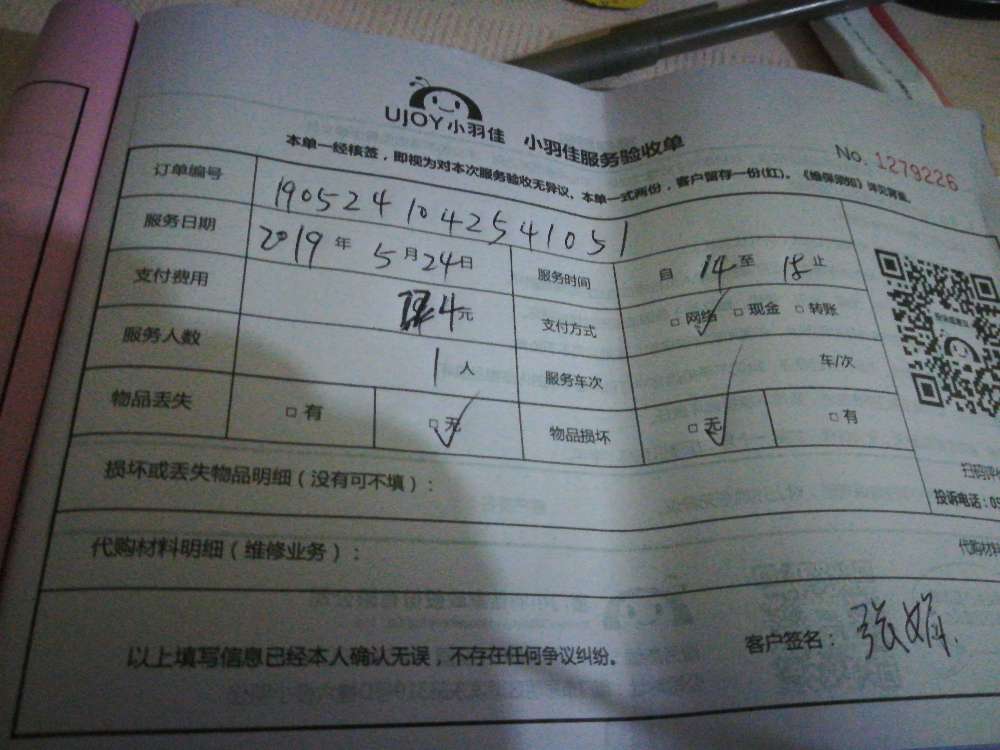 UJOY小羽佳 小羽佳服务验收单
No. 1279226
本单一经核签，即视为对本次服务验收无异议、本单一式两份，客户留存一份(红)。
订单编号 1905241042541051
服务日期 2019年5月24日 服务时间 自14至18止
支付费用 4元 支付方式 □网络 □现金 □转账
服务人数 1人 服务车次 车/次
物品丢失 □有 □无 物品损坏 □无 □有
损坏或丢失物品明细（没有可不填）：
扫码评
投诉电话：05
代购材料明细（维修业务）：
代购材料
以上填写信息已经本人确认无误，不存在任何争议纠纷。
客户签名：张娟